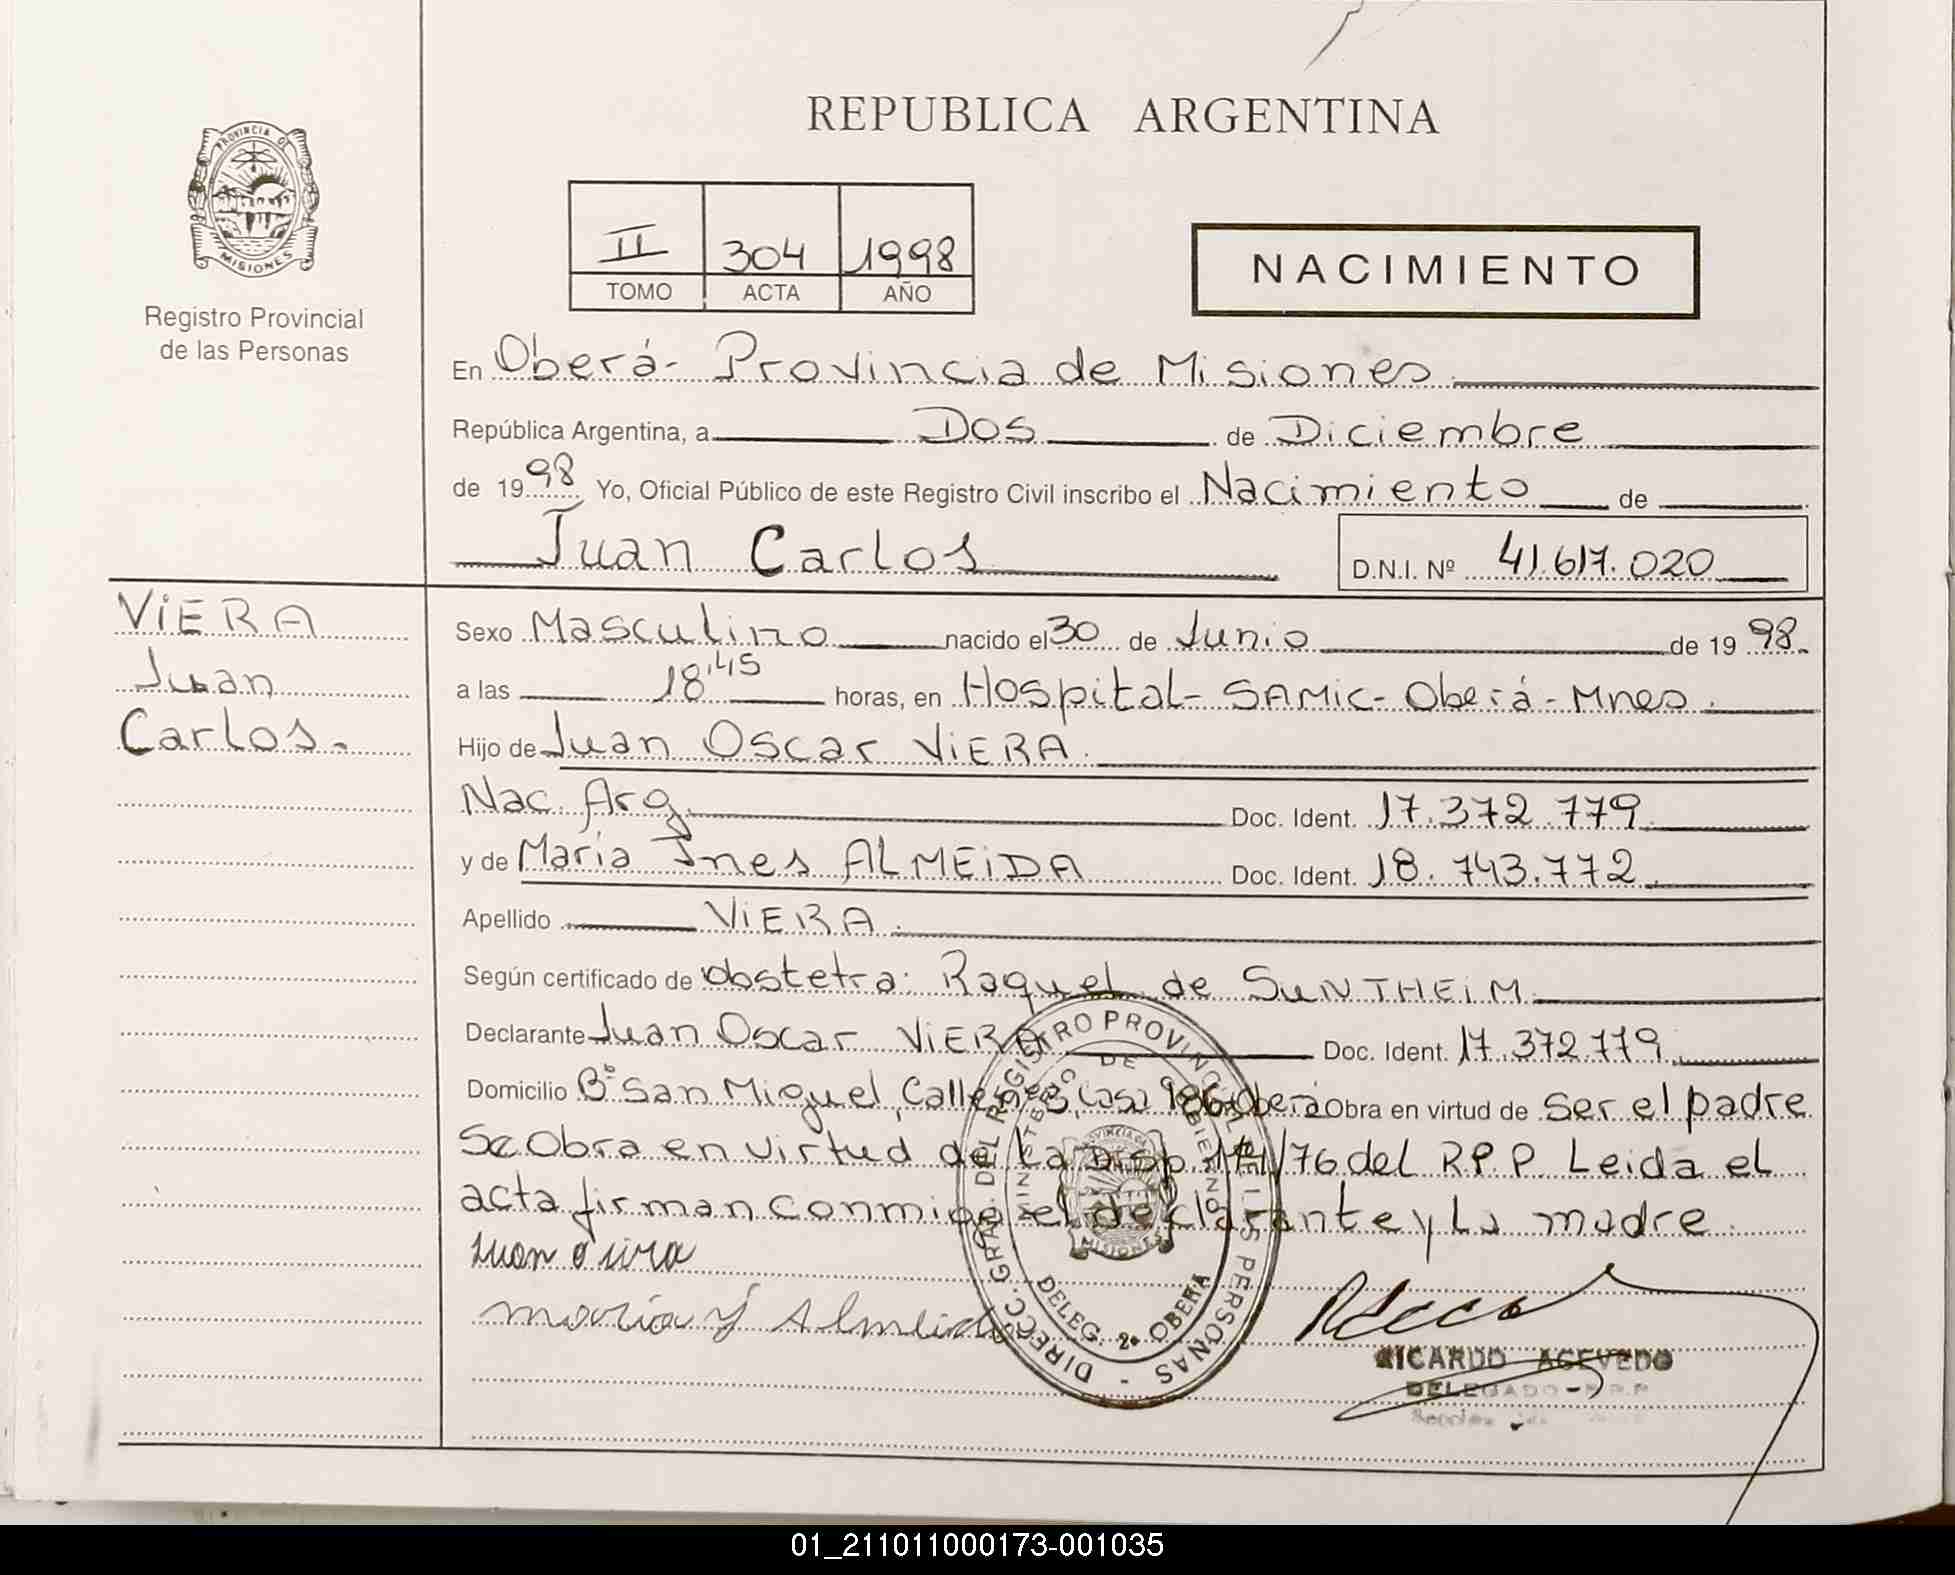 PROVINCIA DE
MISIONES
Registro Provincial
de las Personas
REPUBLICA ARGENTINA
II 304 1998
TOMO ACTA AÑO
NACIMIENTO
En Oberá - Provincia de Misiones
República Argentina, a Dos de Diciembre
de 1998 Yo, Oficial Público de este Registro Civil inscribo el Nacimiento de
Juan Carlos D.N.I. Nº 41.617.020
VIERA
Juan
Carlos.
Sexo Masculino nacido el 30 de Junio de 1998.
a las 18'45 horas, en Hospital - SAMic - Oberá - Mnes.
Hijo de Juan Oscar ViERA.
Nac. Arg. Doc. Ident. 17.372.779
y de María Ines ALMEiDA Doc. Ident. 18.743.772.
Apellido ViERA.
Según certificado de obstetra: Raquel de SUNTHEiM
Declarante Juan Oscar ViERA Doc. Ident. 17.372.779
Domicilio Bº San Miguel, Calle nº 3, Casa 186 - Oberá Obra en virtud de ser el padre
Se Obra en virtud de La Disp. 171/76 del R.P.P Leida el
acta firman conmigo el declarante y La madre.
Juan
maria Y Almeida
DIRECC. GRAL. DEL REGISTRO PROVINCIAL DE LAS PERSONAS -
MINISTERIO DE GOBIERNO
PROVINCIA DE
MISIONES
DELEG. 2ª OBERÁ
RICARDO ACEVEDO
DELEGADO - R.P.P
01_211011000173-001035